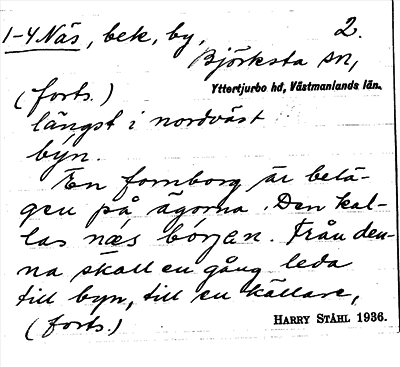 1-4 Näs, bek, by, 2.
Björksta sn,
Yttertjurbo hd, Västmanlands län.
(forts.)
längst i nordväst
byn.
En fornborg är belä-
gen på ägorna. Den kal-
las næs borjen. Från den-
na skall en gång leda
till byn, till en källare,
(forts.)
HARRY STÅHL 1936.